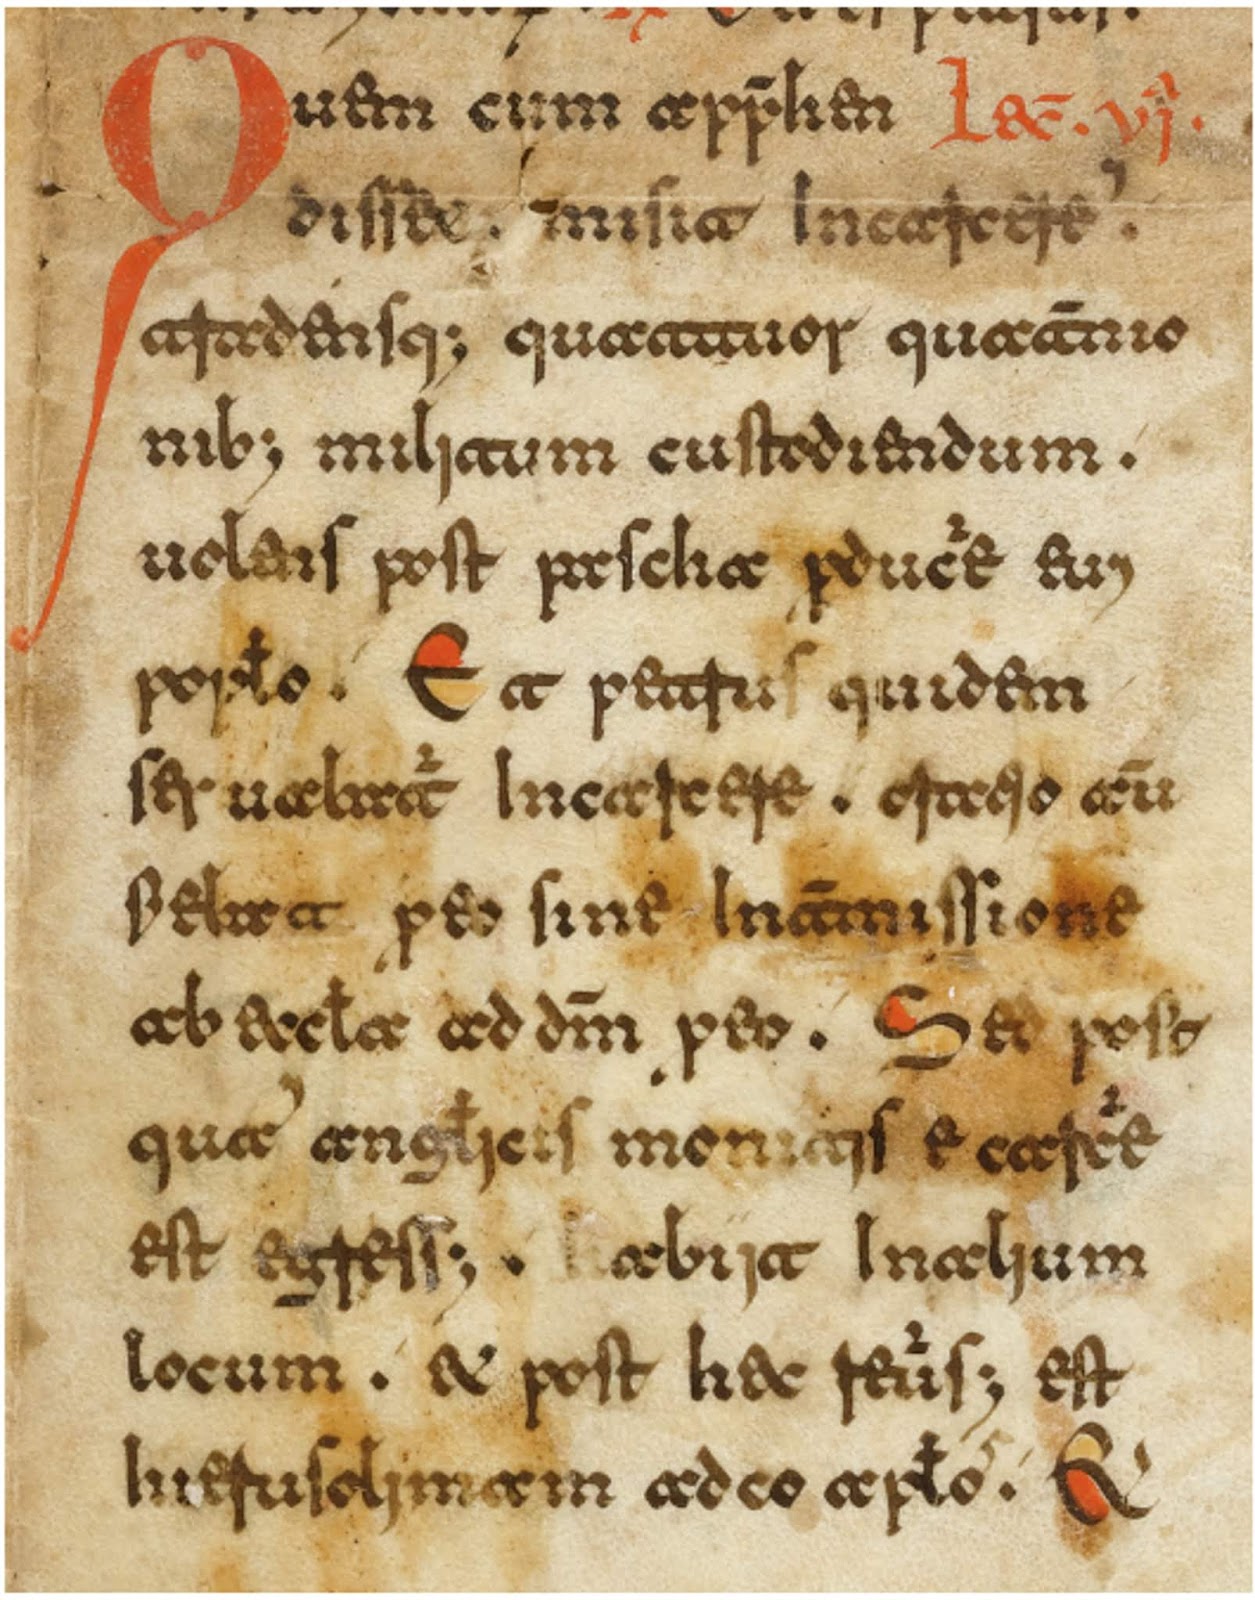 Quem cum app̄hen Lec̄. vij.
disset. misit Incarcere.
atradensq; quattuor quat̄nio
nib; militum custodiendum.
uolens post pascha ꝓducer̄e eum
popło. Et petrus quidem
seruabat̄ Incarcere. oratio aūt
fiebat pro eo sine Int̄missione
ab eccła ad dn̄m pro eo. Sed post
qua angłicis monitis e carcer̄e
est egress;. abiit Inalium
locum. & post hec reūs; est
hierusolimam adco apło. &